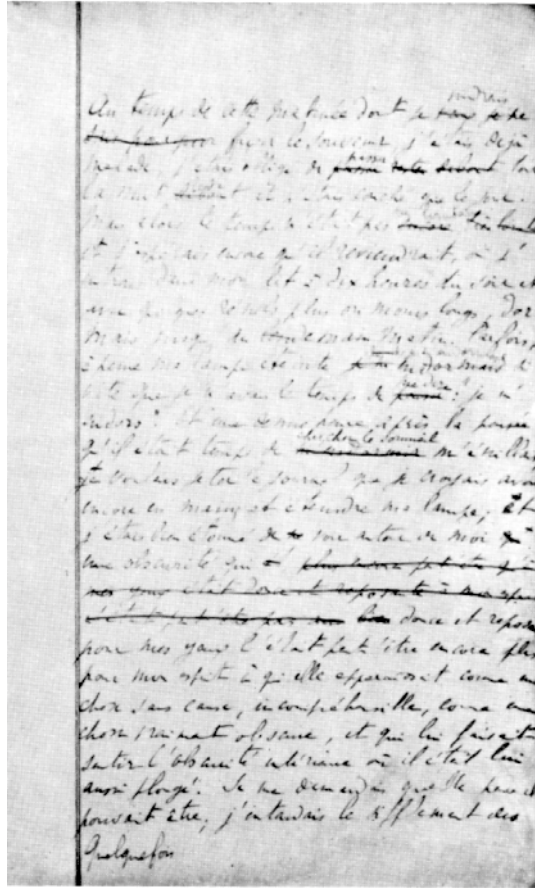 voudrais
Au temps de cette matinée dont je sais je ne
fixer le souvenir, j'étais déjà
malade, j'étais obligé de passer debout tou
la nuit et n'étais couché que le jour.
Mais alors le temps n'était pas très lointain
et j'espérais encore qu'il reviendrait, où j'
entrais dans mon lit à dix heures du soir et
avec quelques réveils plus ou moins longs, dor
mais jusqu'au lendemain matin. Parfois,
à peine ma lampe éteinte je m'endormais si
vite que je n'avais le temps de me dire : je m'
endors. Et une demi heure après la pensée
qu'il était temps de chercher le sommeil m'éveillai
je voulais jeter le journal que je croyais avoir
encore en main et éteindre ma lampe, Et
j'étais bien étonné de voir autour de moi
une obscurité qui plus encore peut être
mes yeux était douce et reposante à mon
n'était peut être pas douce et repos
pour mes yeux l'était peut être encore plus
pour mon esprit à qui elle apparaissait comme un
chose sans cause, incompréhensible, comme une
chose vraiment obscure, et qui lui faisait
sentir l'obscurité intérieure où il était lui
aussi plongé. Je me demandais quelle heure il
pouvait être, j'entendais le sifflement des
Quelquefois